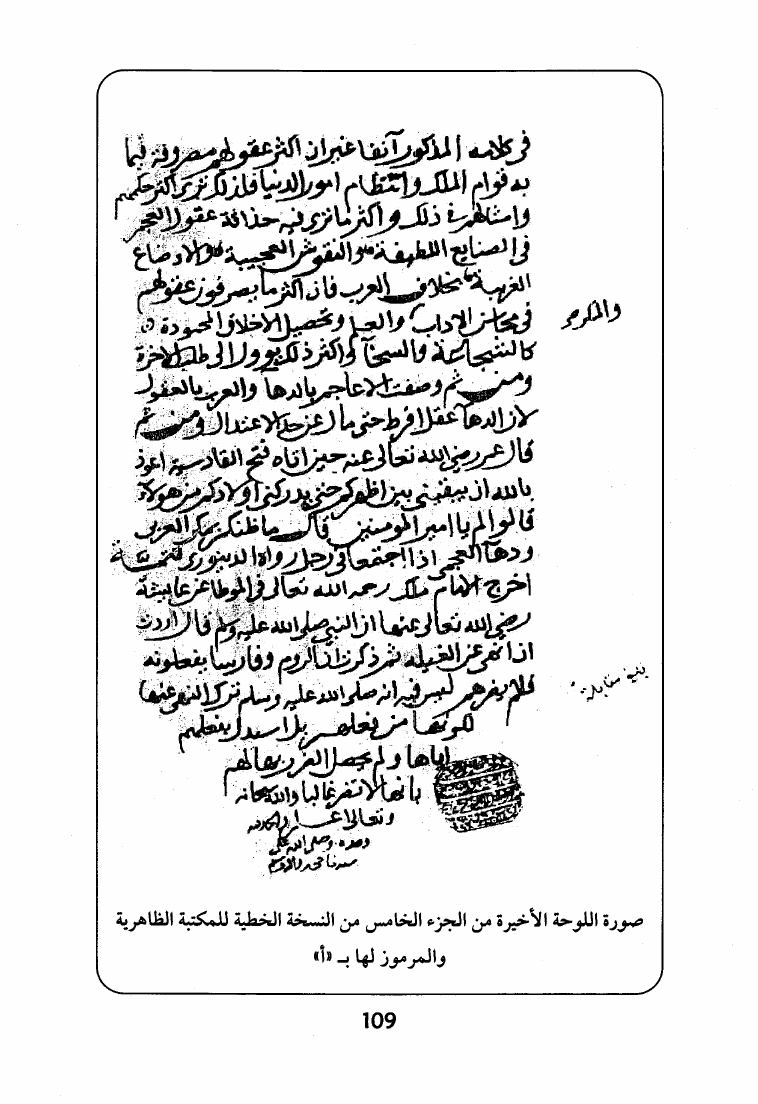 في كلامه المذكور آنفا غير ان اكثر عقولهم مصروفة فيما
به قوام الملك وانتظام امور الدنيا فلذلك ترى اكثر حكمهم
وامثالهم في ذلك واكثر ما ترى فيه حذاقة عقول العجم
في الصنايع اللطيفة والنقوش العجيبة والاوضاع
الغريبة بخلاف العرب فان اكثر ما يصرفون عقولهم
في محاسن الاداب والعلم وتحصيل الاخلاق المحمودة
والمكرم
كالشجاعة والسخآ واكثر ذلك يوول الى طلب الاخرة
ومن ثم وصفت الاعاجم بالدها والعرب بالعقول
لان الدها عقل افرط حتى مال عن حد الاعتدال ومن ثم
قال عمر رضي الله تعالى عنه حين اتاه فتح القادسية اعوذ
بالله ان يبقيني بين اظهركم حتى يدركني اولادكم من هولاء
قالوا لم يا امير المومنين قال ما ظنكم بمكر العربي
ودهآ العجمي اذا اجتمعا في رجل رواه الدينوري
اخرج الامام ملك رحمه الله تعالى في الموطا عن عايشة
رضي الله تعالى عنها ان النبي صلى الله عليه وسلم قال اردت
ان انهى عن الغيله ثم ذكرت ان الروم وفارسا يفعلونه
فلا يضرهم ليس فيه انه صلى الله عليه وسلم ترك النهي عنها
لكونها من فعلهم بل استدل بفعلهم
اياها ولم يحصل الضرر بها لهم
بانها لا تضر غالبا والله سبحانه
وتعالى اعلم
وحده وصلى الله على
سيدنا محمد واله وسلم
مقابلة
صورة اللوحة الأخيرة من الجزء الخامس من النسخة الخطية للمكتبة الظاهرية
والمرموز لها بـ «أ»
109